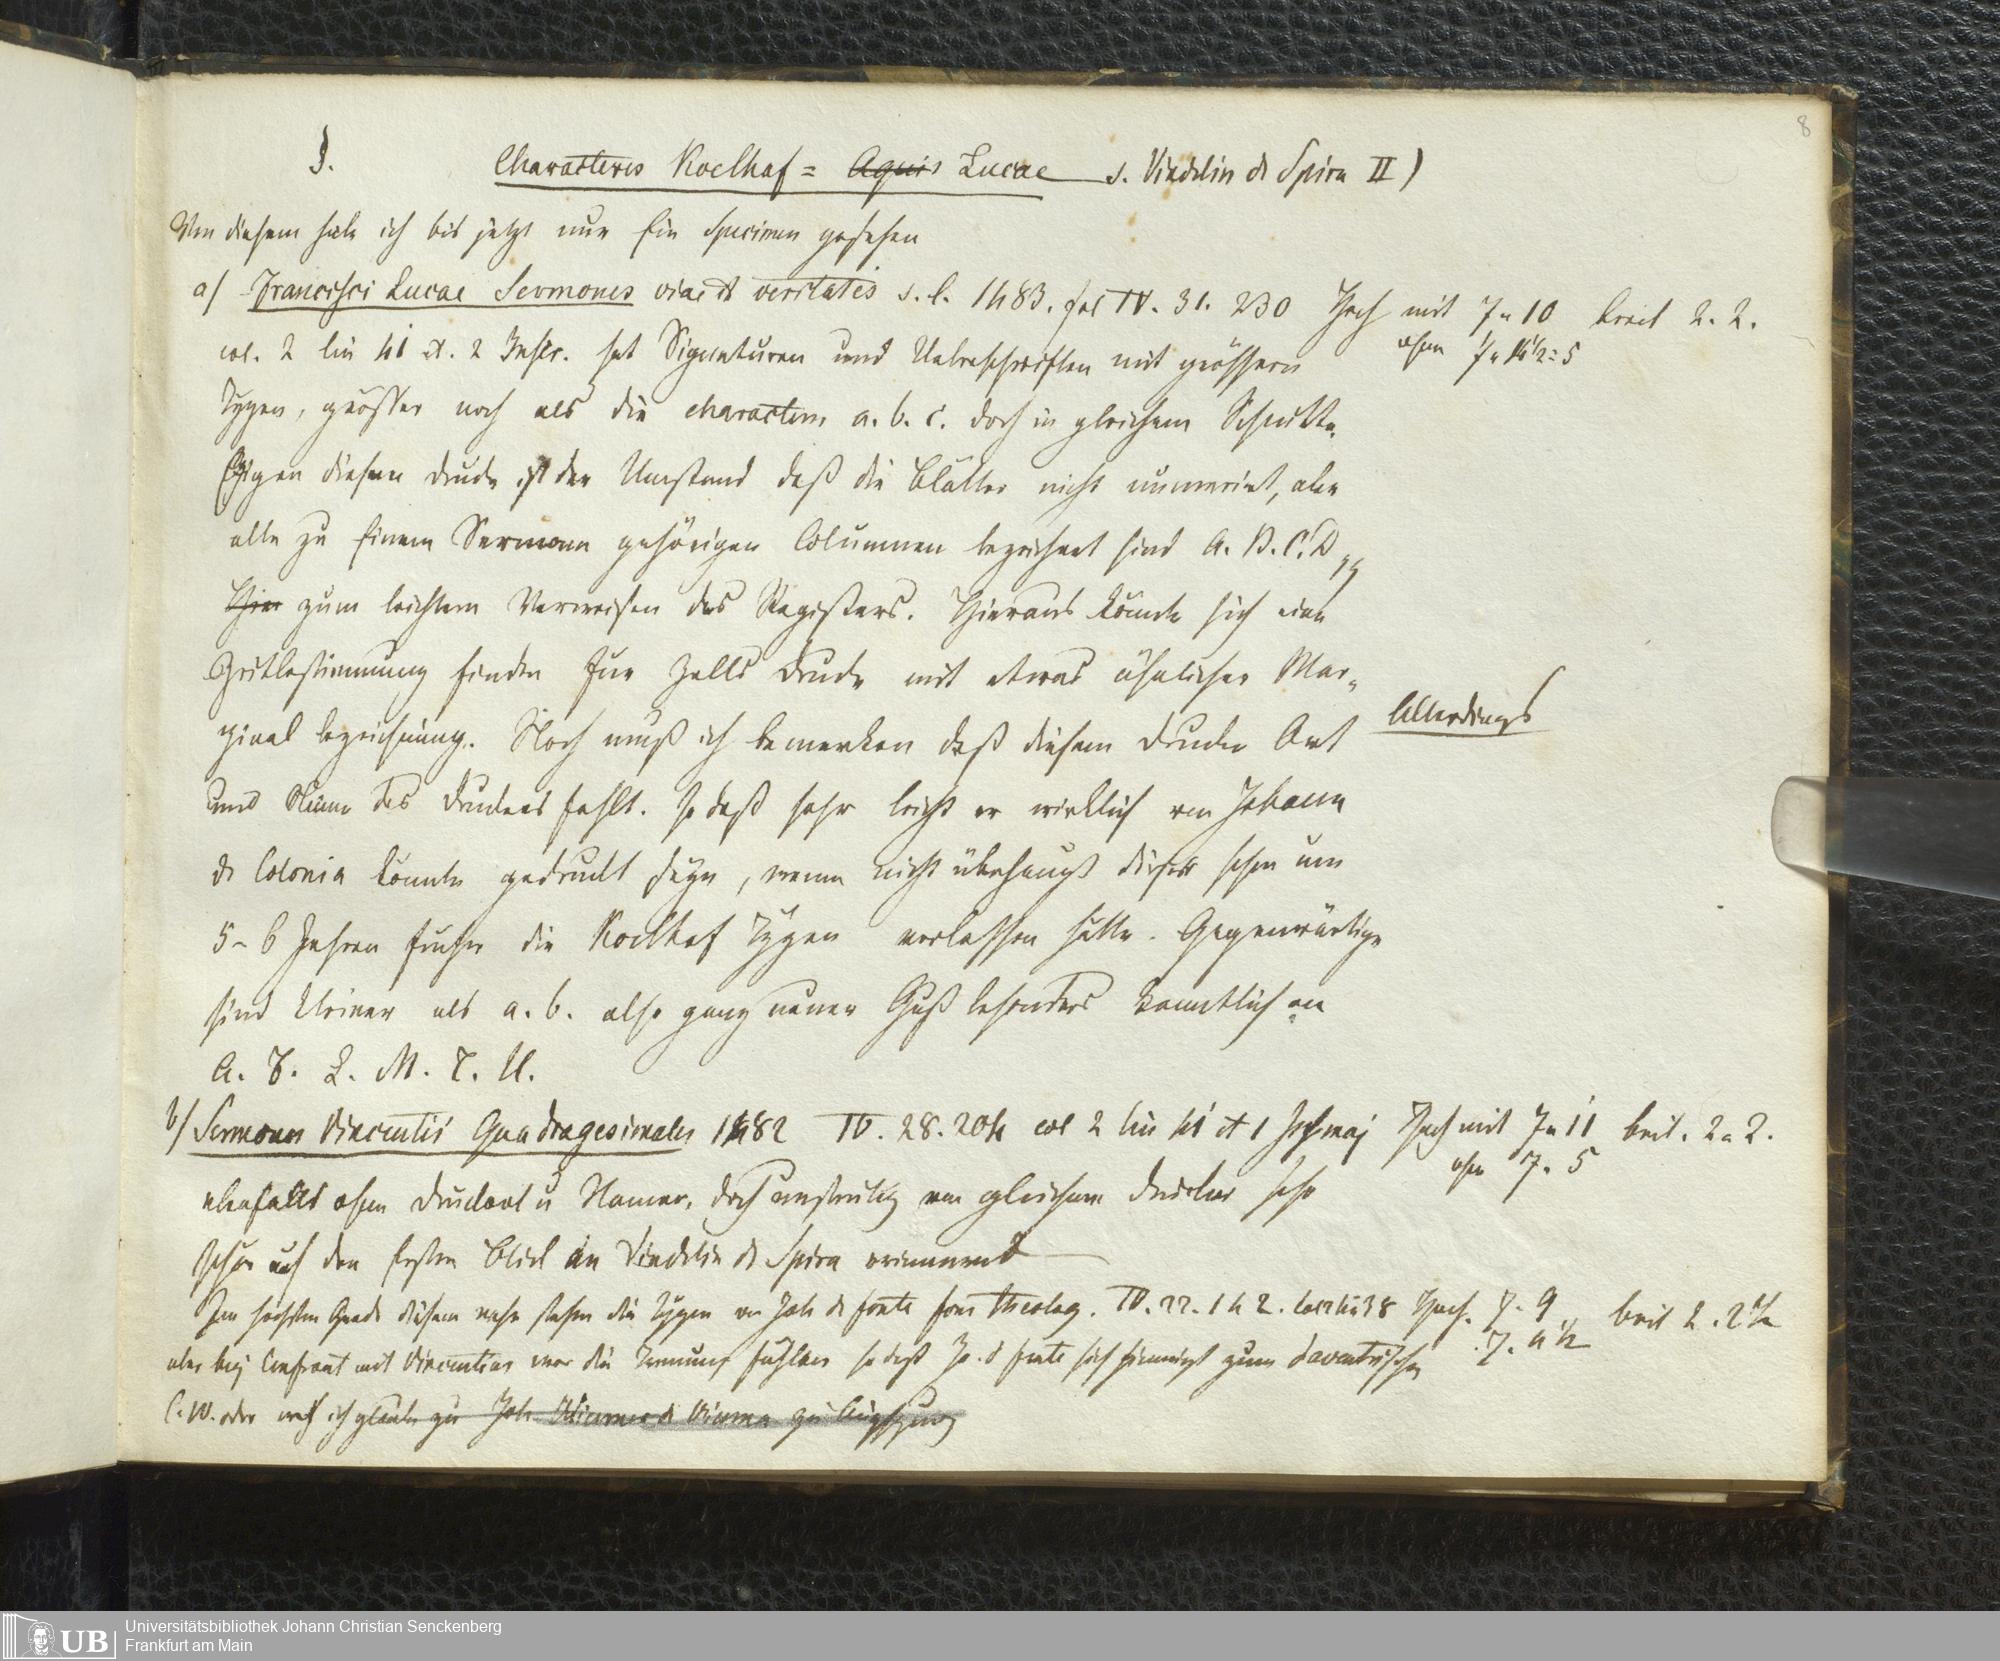 8
3. Characteres Koelhof = Aquis Lucae s. Vindelin de Spira II)
Von diesem habe ich bis jetzt nur Ein Specimen gesehen
a) Francisci Lucae Sermones viae et veritatis s. l. 1483. fol IV. 31. 230 Hoch mit 7 " 10 breit 2. 2.
col. 2 lin 41 et. 2 hat Signaturen und Ueberschriften mit grössern ohne
Typen, grösser noch als die characteres a. b. c. doch in gleichem Schnitte.
Eigen diesem Drucke ist der Umstand daß die Blätter nicht numerirt, aber
alle zu Einem Sermone gehörigen Columnen bezeichnet sind A. B. C. D
Hier zum leichtern Verweisen des Registers. Hieraus könnte sich eine
Zeitbestimmung finden für Zells Drucke mit etwas ähnlicher Mar-
ginal bezeichnung. Noch muß ich bemerken daß diesem Drucke Ort Allerdings
und Name des Druckers fehlt. so daß sehr leicht er wirklich von Johann
de Colonia könnte gedruckt seyn, wenn nicht überhaupt dieser schon um
5-6 Jahren früher die Koelhof Typen verlassen hätte. Gegenwärtige
sind kleiner als a. b. also ganz neuer Guß besonders kenntlich an
A. F. L. M. T. U.
b) Sermones Vincentii Quadragesimales 1482 IV. 28. 204 col 2 lin 41 et 1 Hoch mit 7 " 11 breit. 2 " 2.
ebenfalls ohne Druckort u Namen, doch unstreitig von gleichem Drucker sehr ohne 7. 5
schon auf den Ersten Blick an Vindelin de Spira erinnernd
Im höchsten Grade diesem nahe stehen die Typen von Joh de fonte fons theolog. IV. 22. 142. Hoch. 7. 9 breit 2. 2 1/2
aber bey Confront mit Vincentius war die Trennung fühlbar so daß Jo. d fonte sich hinneigt zum daventrischen 7. 4 1/2
C. W. oder noch ich glaube zu Joh Wiener de Vienna zu Augspurg
Universitätsbibliothek Johann Christian Senckenberg
UB
Frankfurt am Main